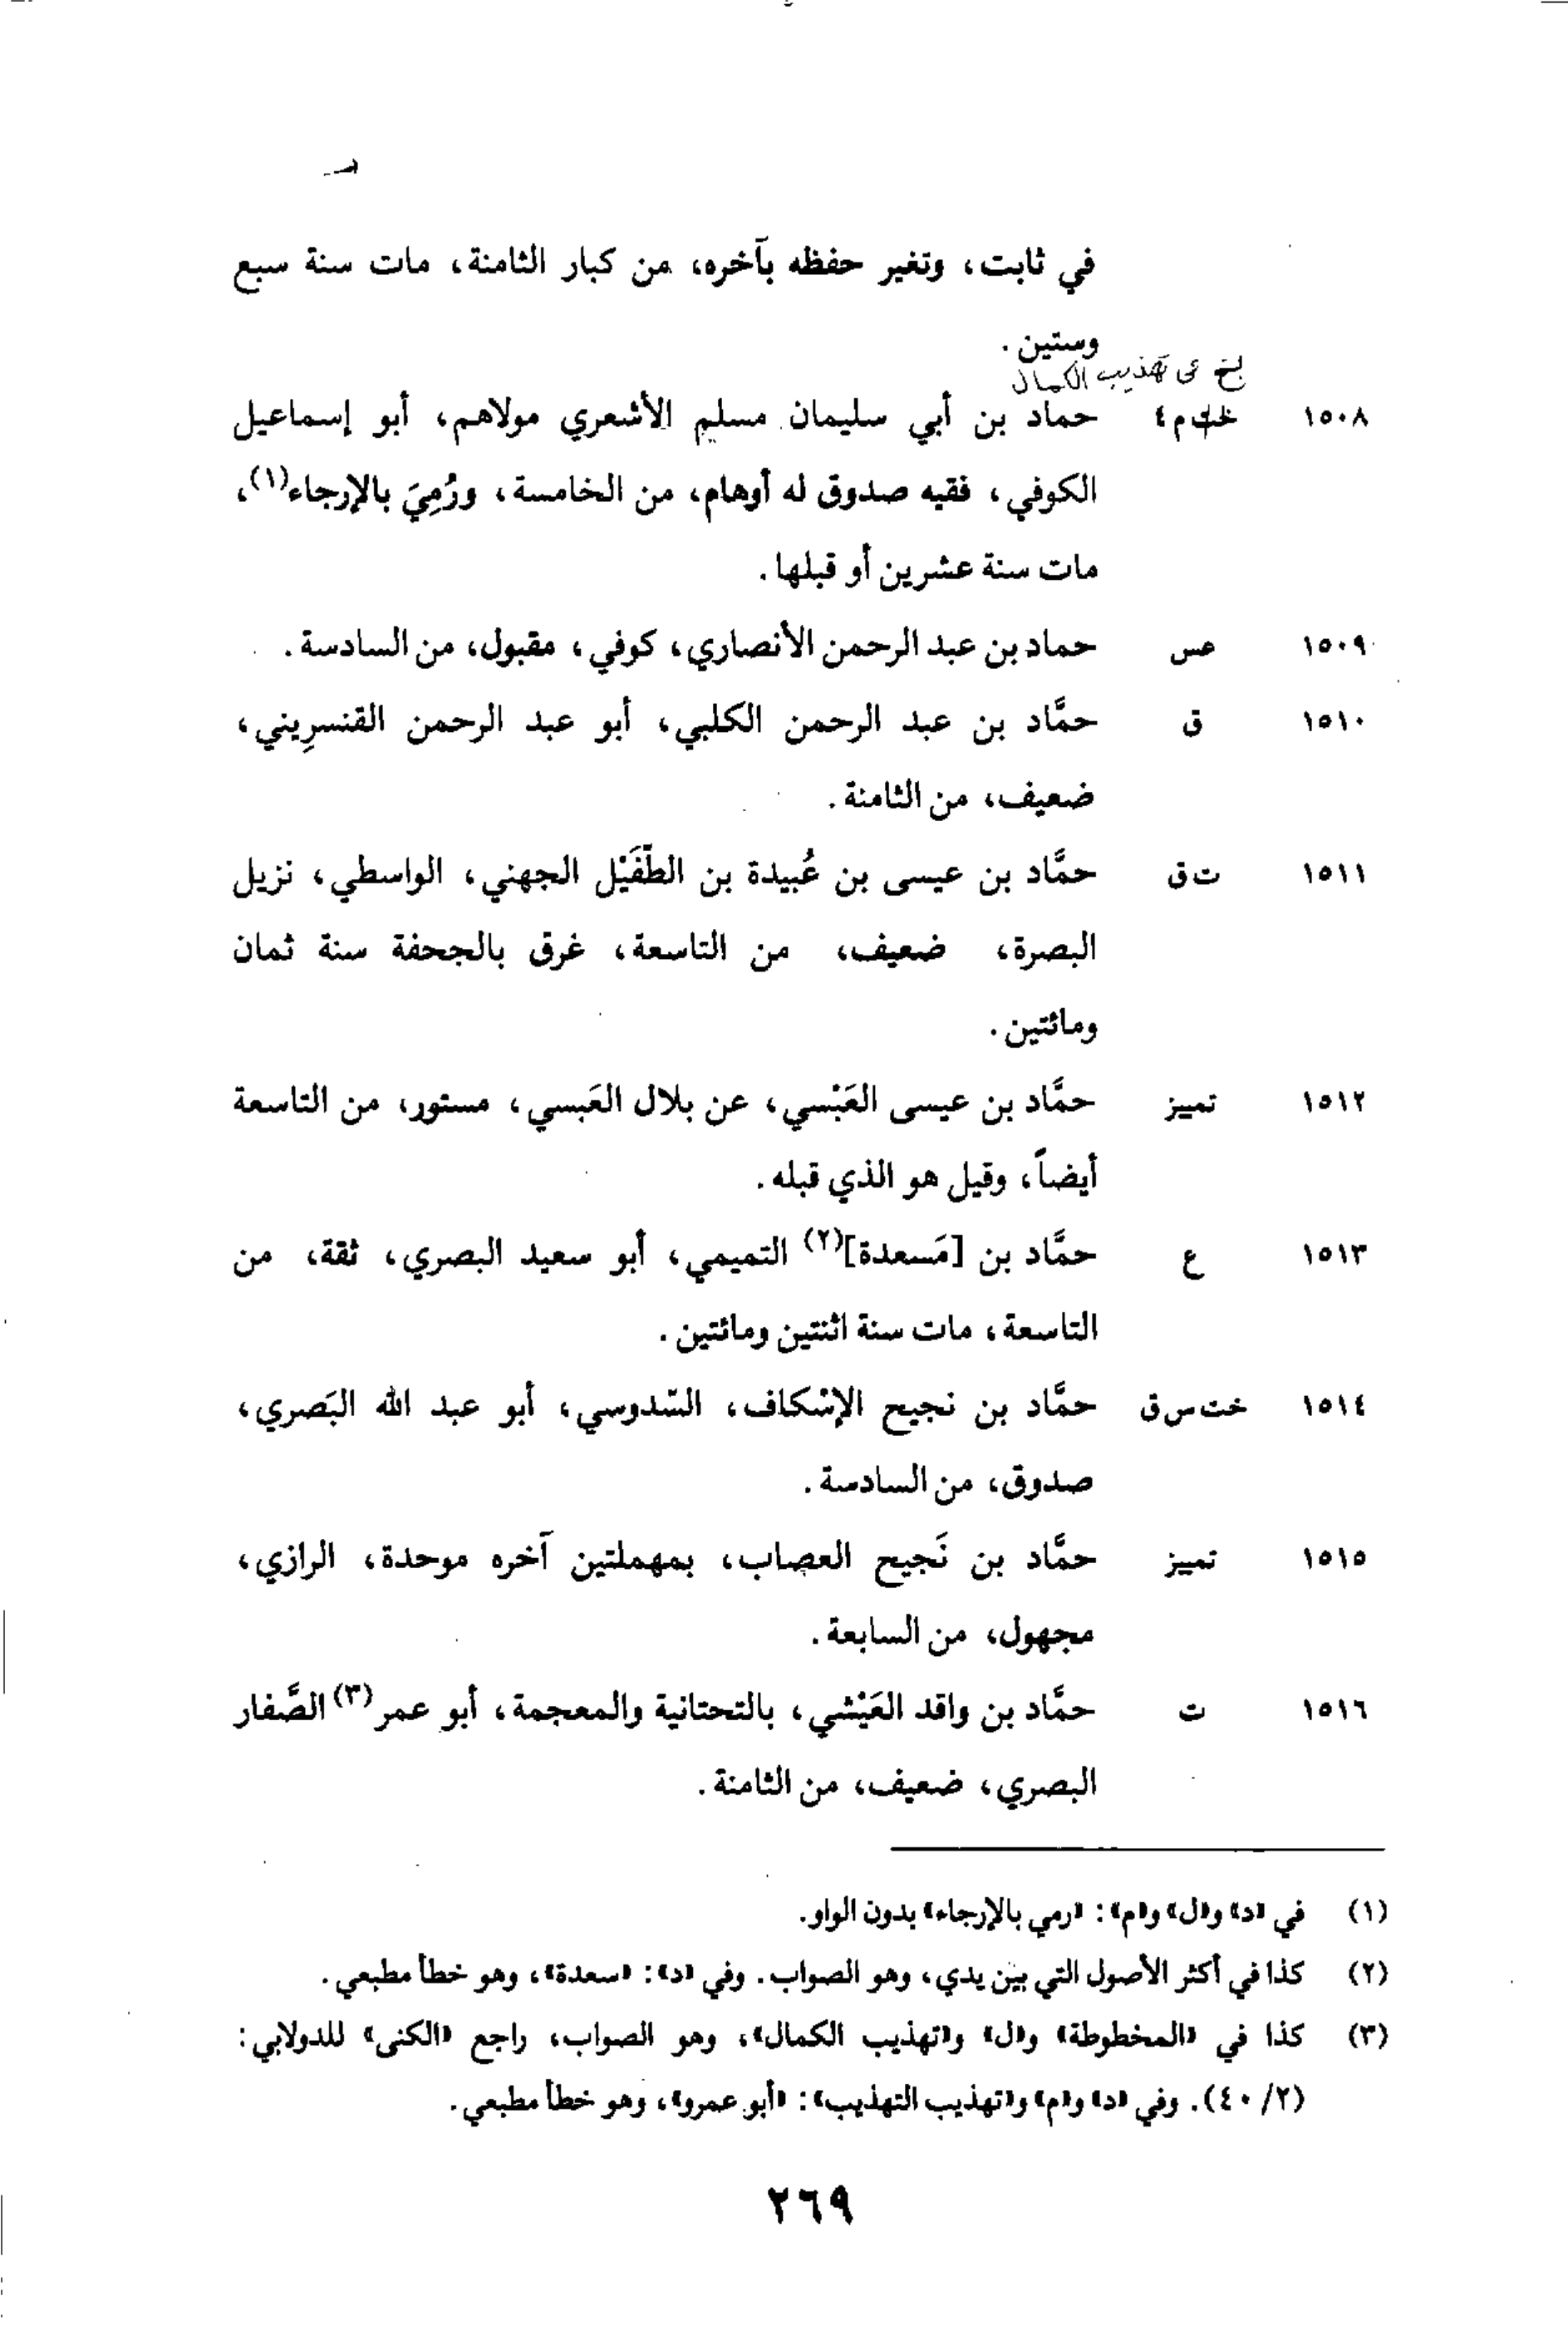 في ثابت، وتغير حفظه بآخره، من كبار الثامنة، مات سنة سبع
وستين.
بخ في تهذيب الكمال
١٥٠٨ خت م ٤ حماد بن أبي سليمان مسلم الأشعري مولاهم، أبو إسماعيل
الكوفي، فقيه صدوق له أوهام، من الخامسة، ورُمِيَ بالإرجاء(١)،
مات سنة عشرين أو قبلها.
١٥٠٩ عس حماد بن عبد الرحمن الأنصاري، كوفي، مقبول، من السادسة.
١٥١٠ ق حمَّاد بن عبد الرحمن الكلبي، أبو عبد الرحمن القنسرِيني،
ضعيف، من الثامنة.
١٥١١ ت ق حمَّاد بن عيسى بن عُبيدة بن الطّفَيْل الجهني، الواسطي، نزيل
البصرة، ضعيف، من التاسعة، غرق بالجحفة سنة ثمان
ومائتين.
١٥١٢ تمييز حمَّاد بن عيسى العَبْسي، عن بلال العَبسي، مستور، من التاسعة
أيضاً، وقيل هو الذي قبله.
١٥١٣ ع حمَّاد بن [مَسعدة](٢) التميمي، أبو سعيد البصري، ثقة، من
التاسعة، مات سنة اثنتين ومائتين.
١٥١٤ خت س ق حمَّاد بن نجيح الإسْكاف، السّدوسي، أبو عبد الله البَصري،
صدوق، من السادسة.
١٥١٥ تمييز حمَّاد بن نَجيح العصاب، بمهملتين آخره موحدة، الرازي،
مجهول، من السابعة.
١٥١٦ ت حمَّاد بن واقد العَيْشي، بالتحتانية والمعجمة، أبو عمر(٣) الصَّفار
البصري، ضعيف، من الثامنة.
(١) في «د» و«ل» و«م»: «رمي بالإرجاء» بدون الواو.
(٢) كذا في أكثر الأصول التي بين يدي، وهو الصواب. وفي «د»: «سعدة»، وهو خطأ مطبعي.
(٣) كذا في «المخطوطة» و«ل» و«تهذيب الكمال»، وهو الصواب، راجع «الكنى» للدولابي:
(٢/ ٤٠). وفي «د» و«م» و«تهذيب التهذيب»: «أبو عمرو»، وهو خطأ مطبعي.
٢٦٩